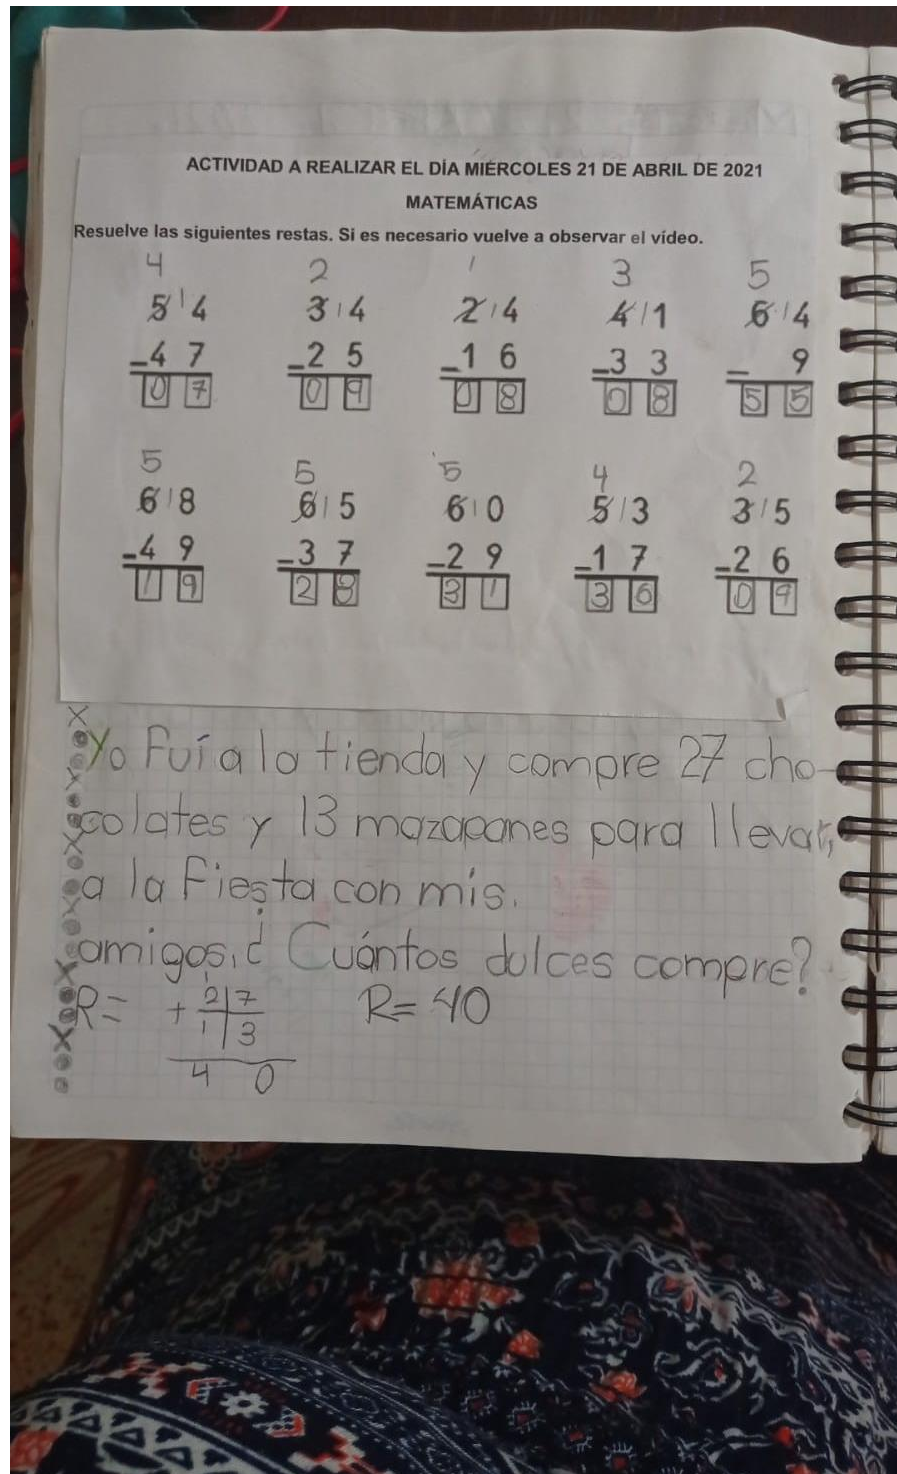 ACTIVIDAD A REALIZAR EL DÍA MIÉRCOLES 21 DE ABRIL DE 2021
MATEMÁTICAS
Resuelve las siguientes restas. Si es necesario vuelve a observar el vídeo.
4 2 1 3 5
5 1 4 3 1 4 2 1 4 4 1 1 6 1 4
-4 7 -2 5 -1 6 -3 3 - 9
0 7 0 9 0 8 0 8 5 5
5 5 5 4 2
6 1 8 6 1 5 6 1 0 5 1 3 3 1 5
-4 9 -3 7 -2 9 -1 7 -2 6
1 9 2 8 3 1 3 6 0 9
Yo Fuí a la tienda y compre 27 cho-
colates y 13 mazapanes para llevar,
a la Fiesta con mis.
amigos,¿ Cuántos dulces compre?
R= + 2 7 R= 40
1 3
4 0